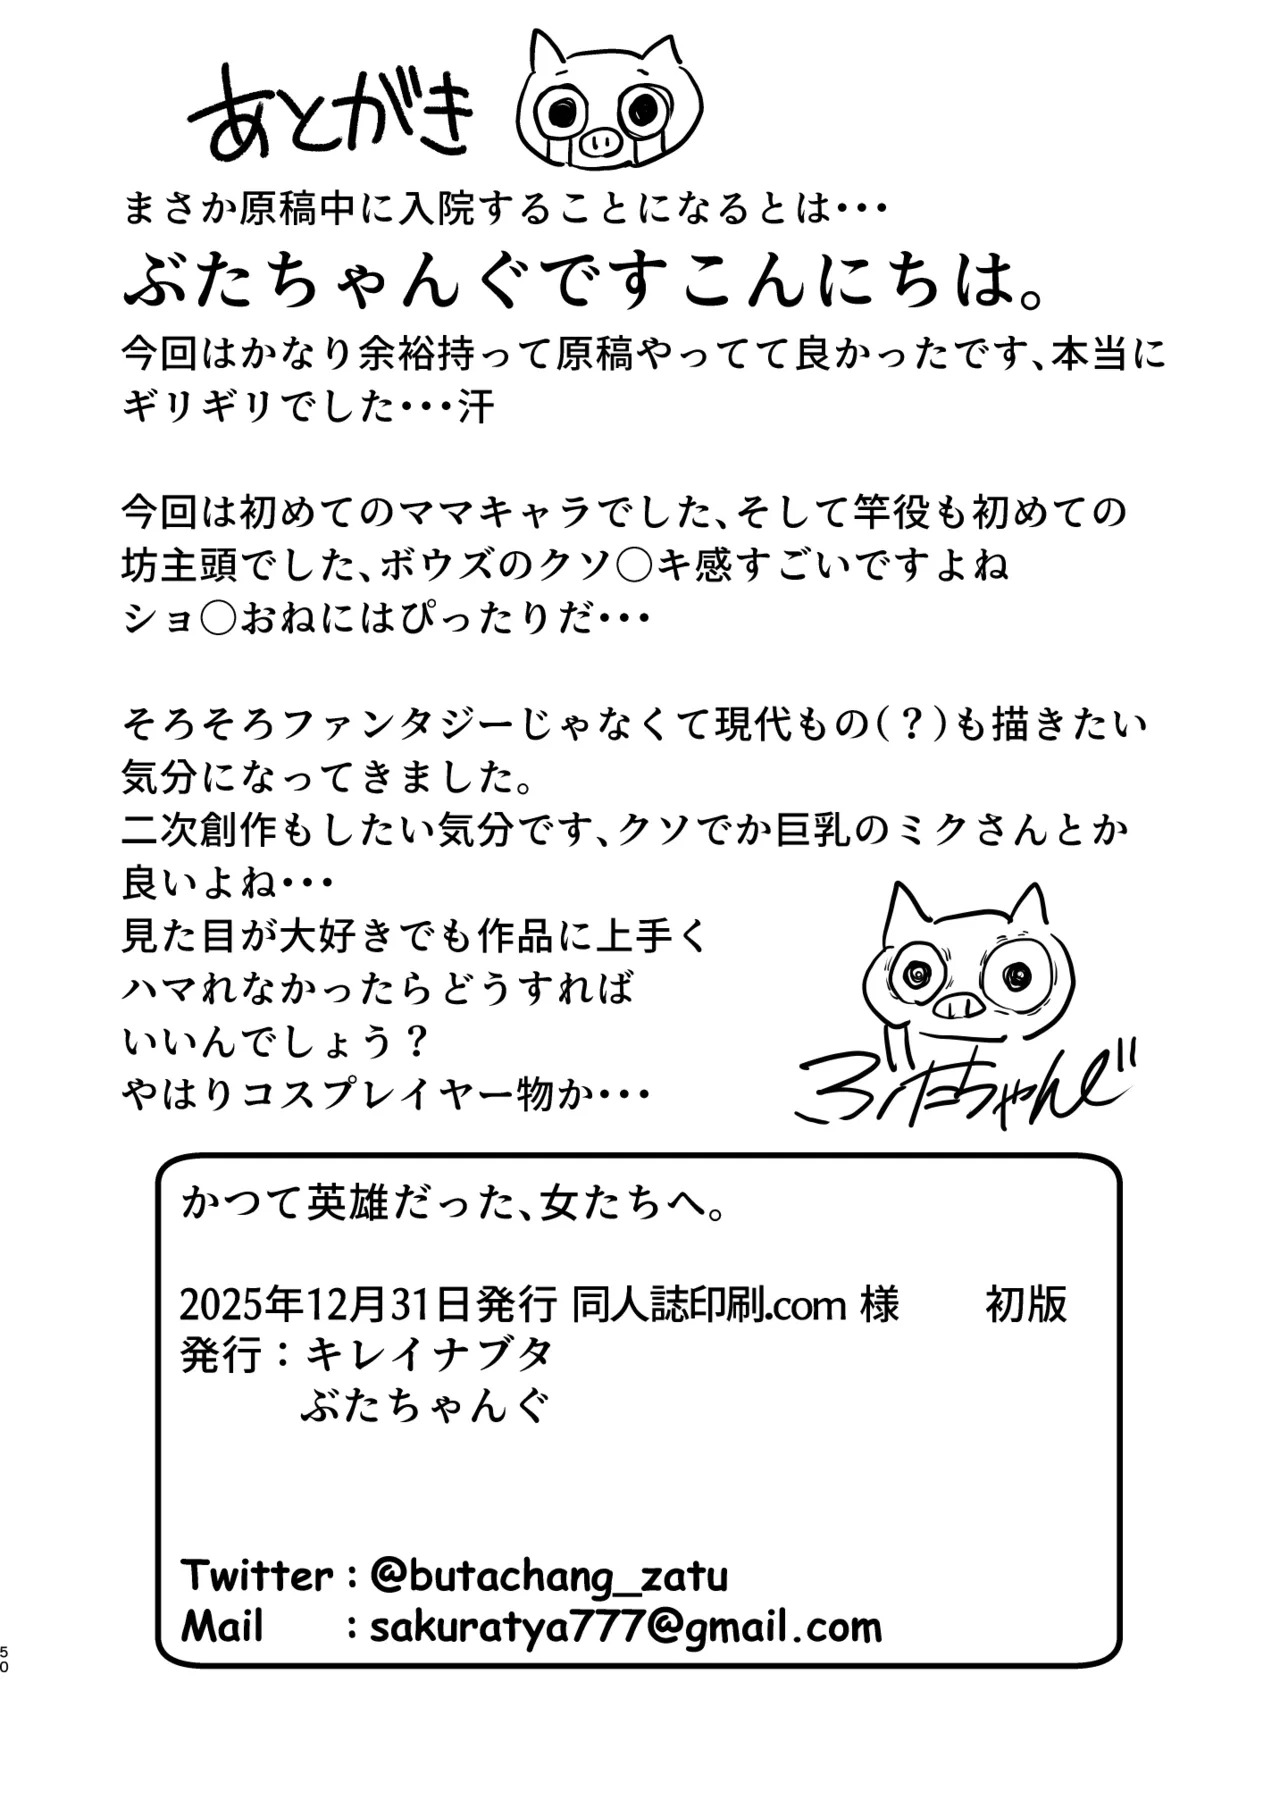 あとがき
まさか原稿中に入院することになるとは・・・
ぶたちゃんぐですこんにちは。
今回はかなり余裕持って原稿やってて良かったです、本当に
ギリギリでした・・・汗
今回は初めてのママキャラでした、そして竿役も初めての
坊主頭でした、ボウズのクソ〇キ感すごいですよね
ショ〇おねにはぴったりだ・・・
そろそろファンタジーじゃなくて現代もの(？)も描きたい
気分になってきました。
二次創作もしたい気分です、クソでか巨乳のミクさんとか
良いよね・・・
見た目が大好きでも作品に上手く
ハマれなかったらどうすれば
いいんでしょう？
やはりコスプレイヤー物か・・・
ぶたちゃんぐ
かつて英雄だった、女たちへ。
2025年12月31日発行 同人誌印刷.com 様 初版
発行：キレイナブタ
ぶたちゃんぐ
Twitter : @butachang_zatu
Mail : sakuratya777@gmail.com
50